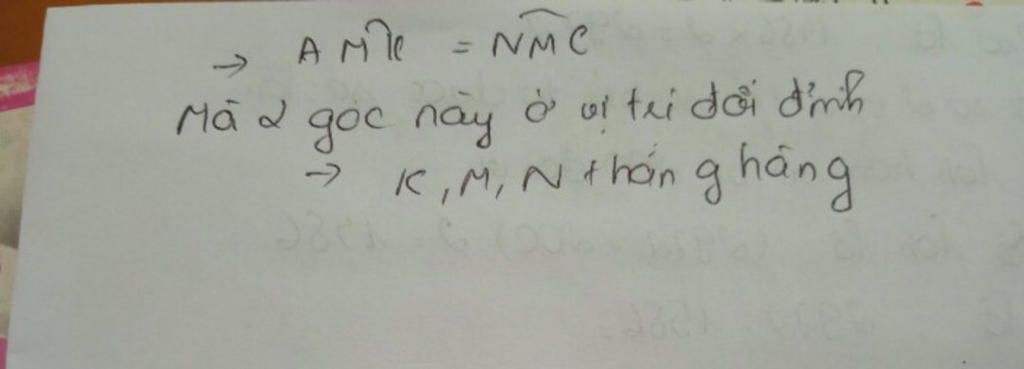 → AMK = NMC
Mà 2 góc này ở vị trí đối đỉnh
→ K, M, N thẳng hàng